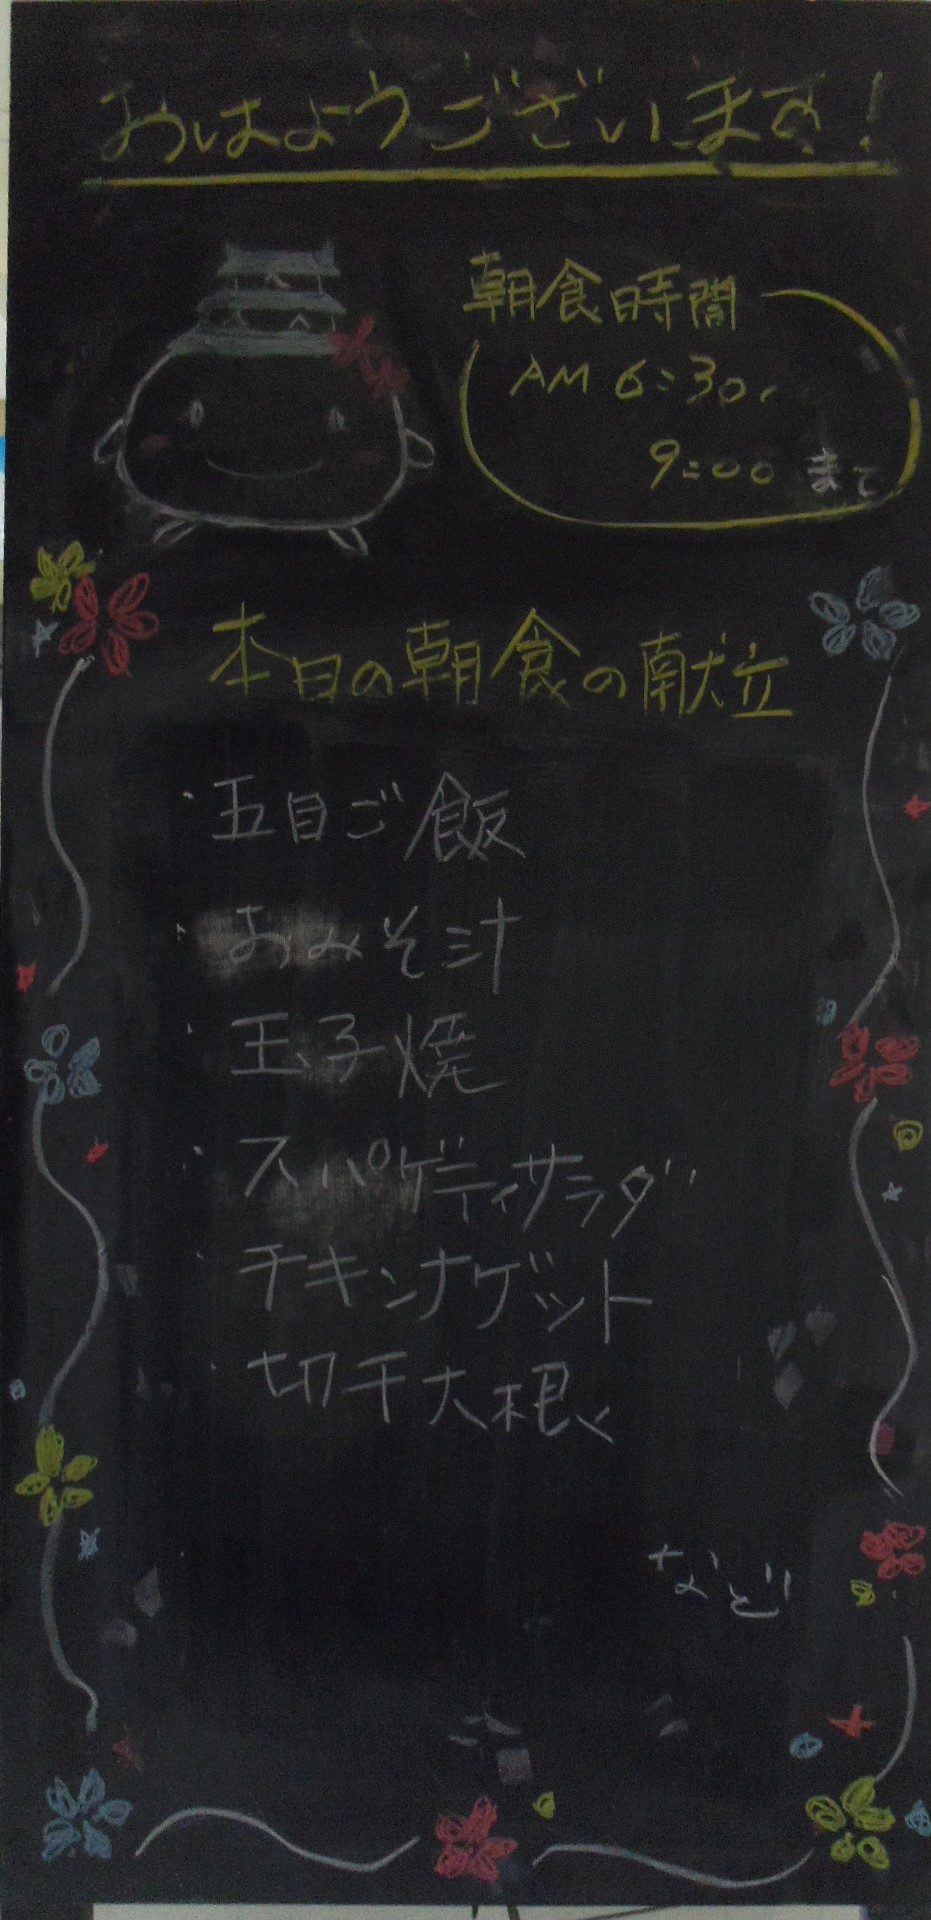 おはようございます!
朝食時間
AM 6:30〜
9:00 まで
本日の朝食の献立
・五目ご飯
・おみそ汁
・玉子焼
・スパゲティサラダ
・チキンナゲット
・切干大根
など